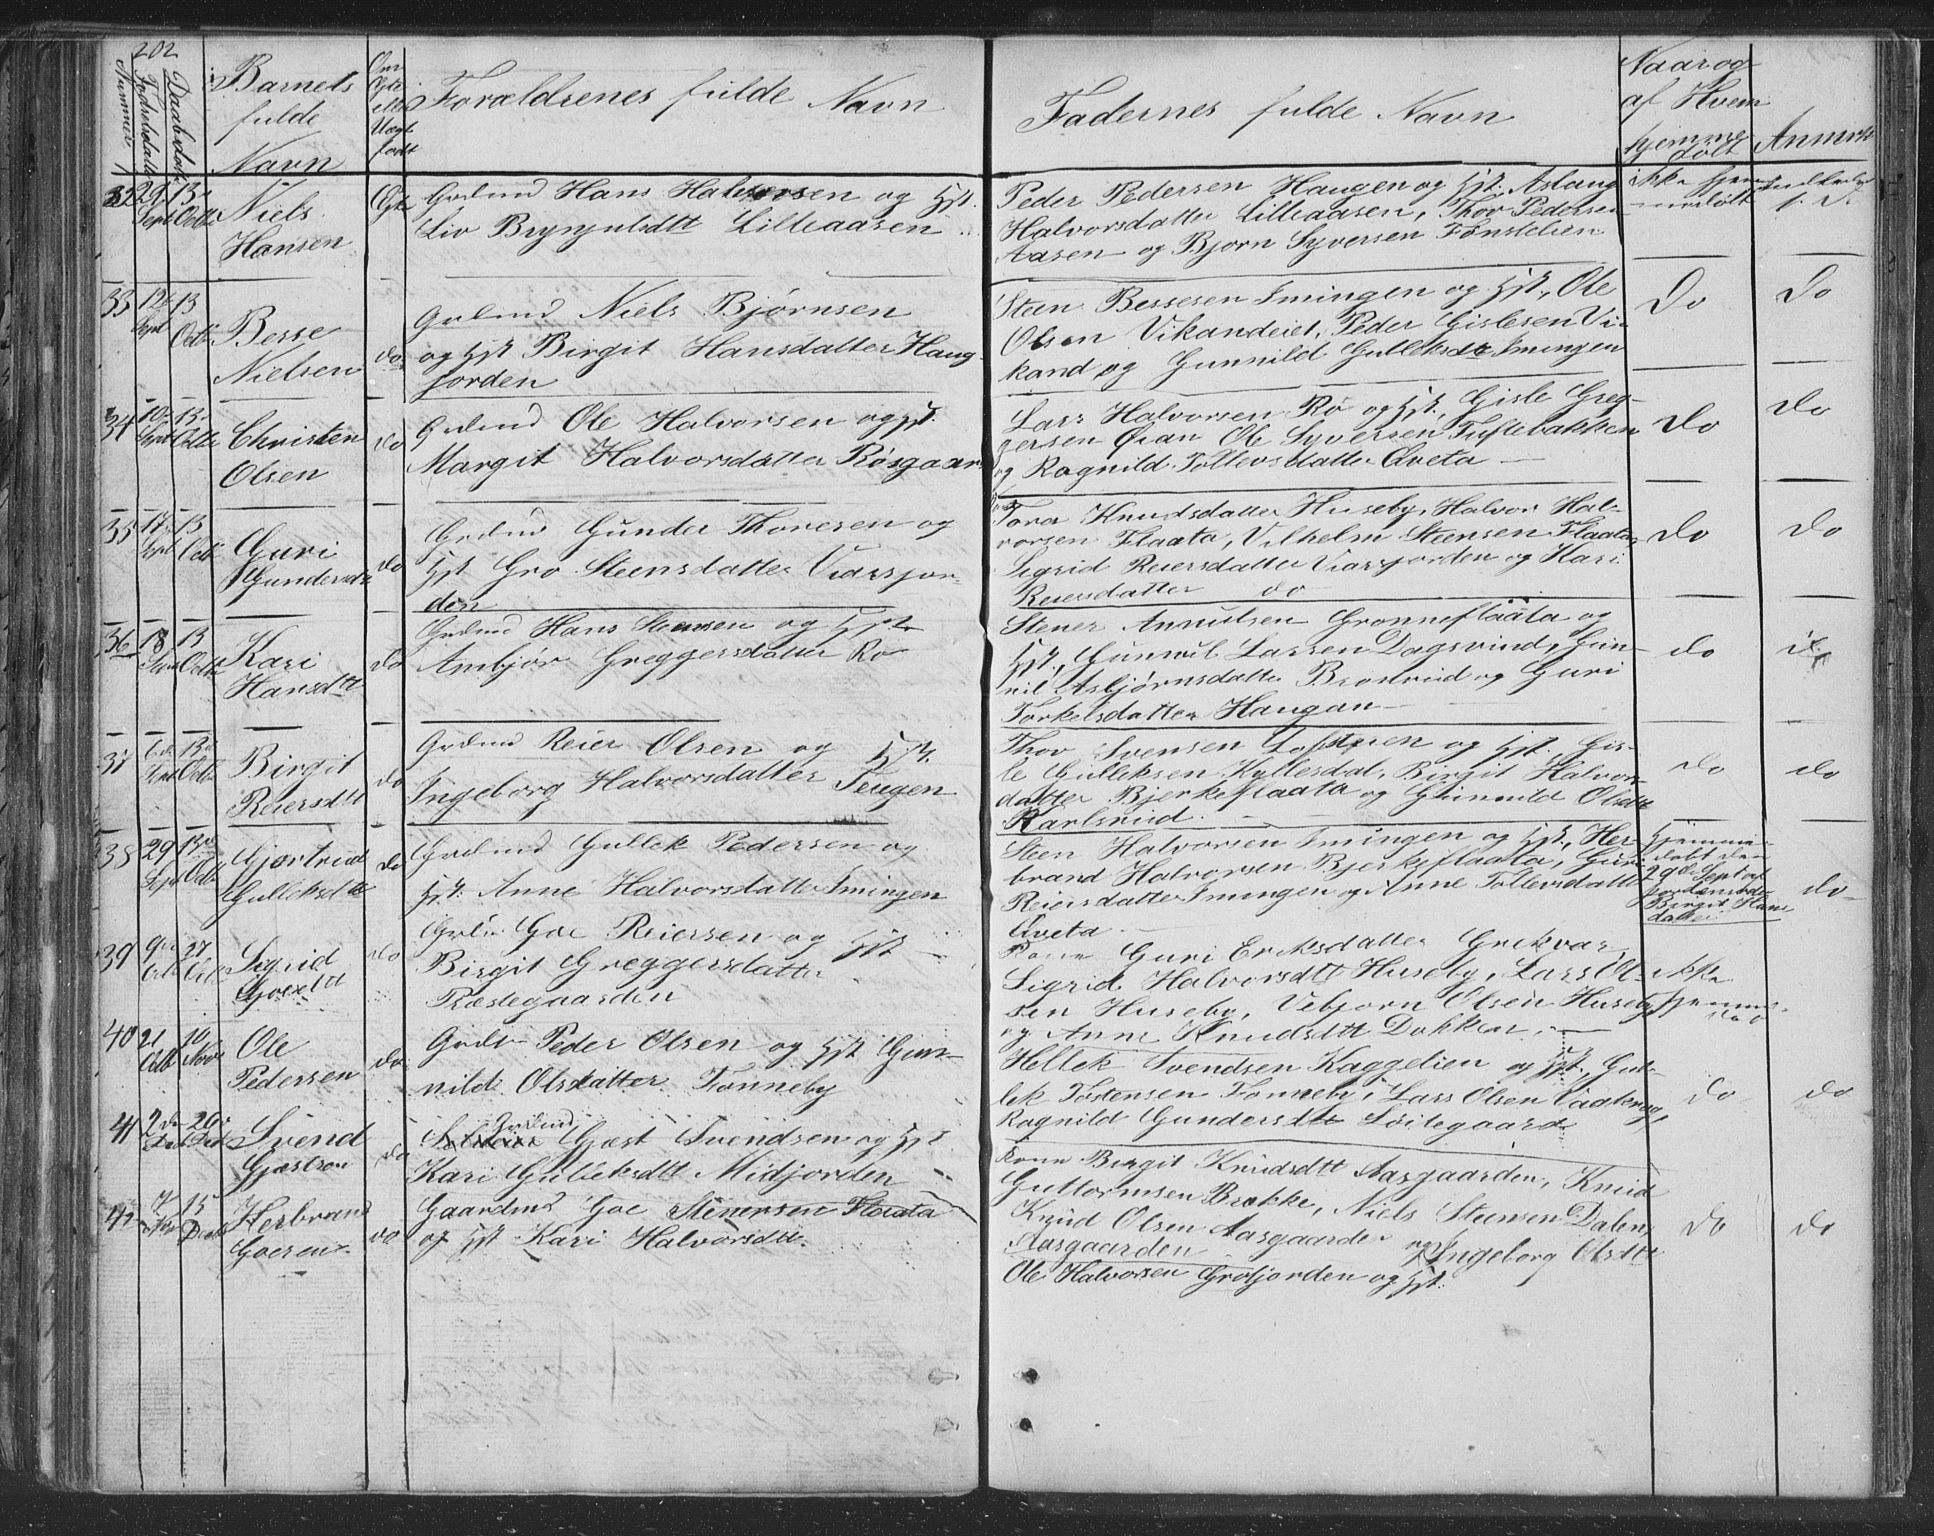 202
Nummer
Fødselsdatum
Daabsdat
Barnets
fulde
Navn
Om
Ægte
eller
Uægt
født
Forældrenes fulde Navn
Fadernes fulde Navn
Naar og
af Hvem
hjemme
døbt
Anmerk
32 29 Sept 13 Octb
Niels
Hansen
Ægte
Grdmd Hans Halvorsen og Hst.
Liv Brynjulsdtt Lilleaasen
Peder Pedersen Haugen og Hst. Aslaug
Halvorsdatter Lilleaasen, Thov Pedersen
Aasen og Bjørn Syversen Fønstelien
ikke hjem-
medøbt
33 12 Sept 13 Octb
Besse
Nielsen
do
Grdmd Niels Bjørnsen
og Hst Birgit Hansdatter Haug-
jorden
Steen Bessesen Imingen og Hst., Ole
Olsen Vikandeiet, Peder Gislesen Vi-
kand og Gunnild Gulleksdtr Imingen
Do
Do
34 10 Sept 13 Octb
Christen
Olsen
do
Grdmd Ole Halvorsen og Hst.
Margit Halvorsdatter Røsgaard
Lars Halvorsen Rø og Hst., Gisle Greg-
gersen Øian Ole Syversen Tuftebakken
og Ragnild Tollevsdatter Qveta
Do
Do
35 17 Sept 13 Octb
Guri
Gundersdt
do
Grdmd Gunder Thoresen og
Hst Gro Steensdatter Viarsjor-
den
Tora Knudsdatter Huseby, Halvor Hal-
vorsen Flaata, Vilhelm Steensen Flaata,
Sigrid Reiersdatter Viarsjorden og Kari
Reiersdatter do
Do
Do
36 18 Sept 13 Octb
Kari
Hansdtt
do
Grdmd Hans Steensen og Hst
Ambjør Greggersdatter Rø
Stener Amundsen Grønneflaata og
Hst., Gunvil Larsen Dagsvind, Gun-
nil Asbjørnsdatter Brosvind og Guri
Torkelsdatter Haugan
do
37 Sept 13 Octb
Birgit
Reiersdtt
do
Grdmd Reier Olsen og Hst.
Ingeborg Halvorsdatter Teigen
Thov Svensen og Hst., Gis-
le Gulleksen Kyllesdal, Birgit Halvor-
datter Bjerkeflaata og Gunnild Olsdtt
Karlsrud.
do
do
38 29 Sept 13 Octb
Gjertrud
Gulleksdtt
do
Grdmd Gullek Pedersen og
Hst. Anne Halvorsdatter Imingen
Steen Halvorsen Imingen og Hst., Her-
brand Halvorsen Bjerkeflaata, Guri
Reiersdatter Imingen og Anne Tollevsdatter
Qveta
Hjemme
døbt den
29de Sept af
Birgit Hans
datter
do
39 9 Octb 27 Octb
Sigrid
Goesdtt
do
Goe Reiersen og Hst
Birgit Greggersdatter
Præstegaarden
Kone Guri Eriksdatter Grekvar,
Sigrid Halvorsdtt Huseby, Lars Ol-
sen Huseby, Vebjørn Olsen Huseby
og Anne Knudsdtt Dokken.
ikke
hjemme-
40 21 Octb 10 Nov
Ole
Pedersen
do
Peder Olsen og Hst Gun-
nild Olsdatter Tønneby
Hellek Svendsen Kaggelien og Hst., Gul-
lek Tostensen Tønneby, Lars Olsen
Ragnild Gundersdtt Løitegaard
do
do
41
Svend
Gjæstsøn
do
Grdmd
Gjæst Svendsen og Hst
Kari Gulleksdtt Midjorden
Kone Birgit Knudsdtt Aasgaarden, Knud
Guttormsen Brække, Niels Steensen Dalen,
Knud Olsen Aasgaarden og Ingeborg Olsdtt
Aasgaarden
42 15 Decb
Herbrand
Goesen
do
Gaardmd Goe Stenersen Flaata
og Hst Kari Halvorsdtt.
Ole Halvorsen Grøfjorden og Hst.
do
do